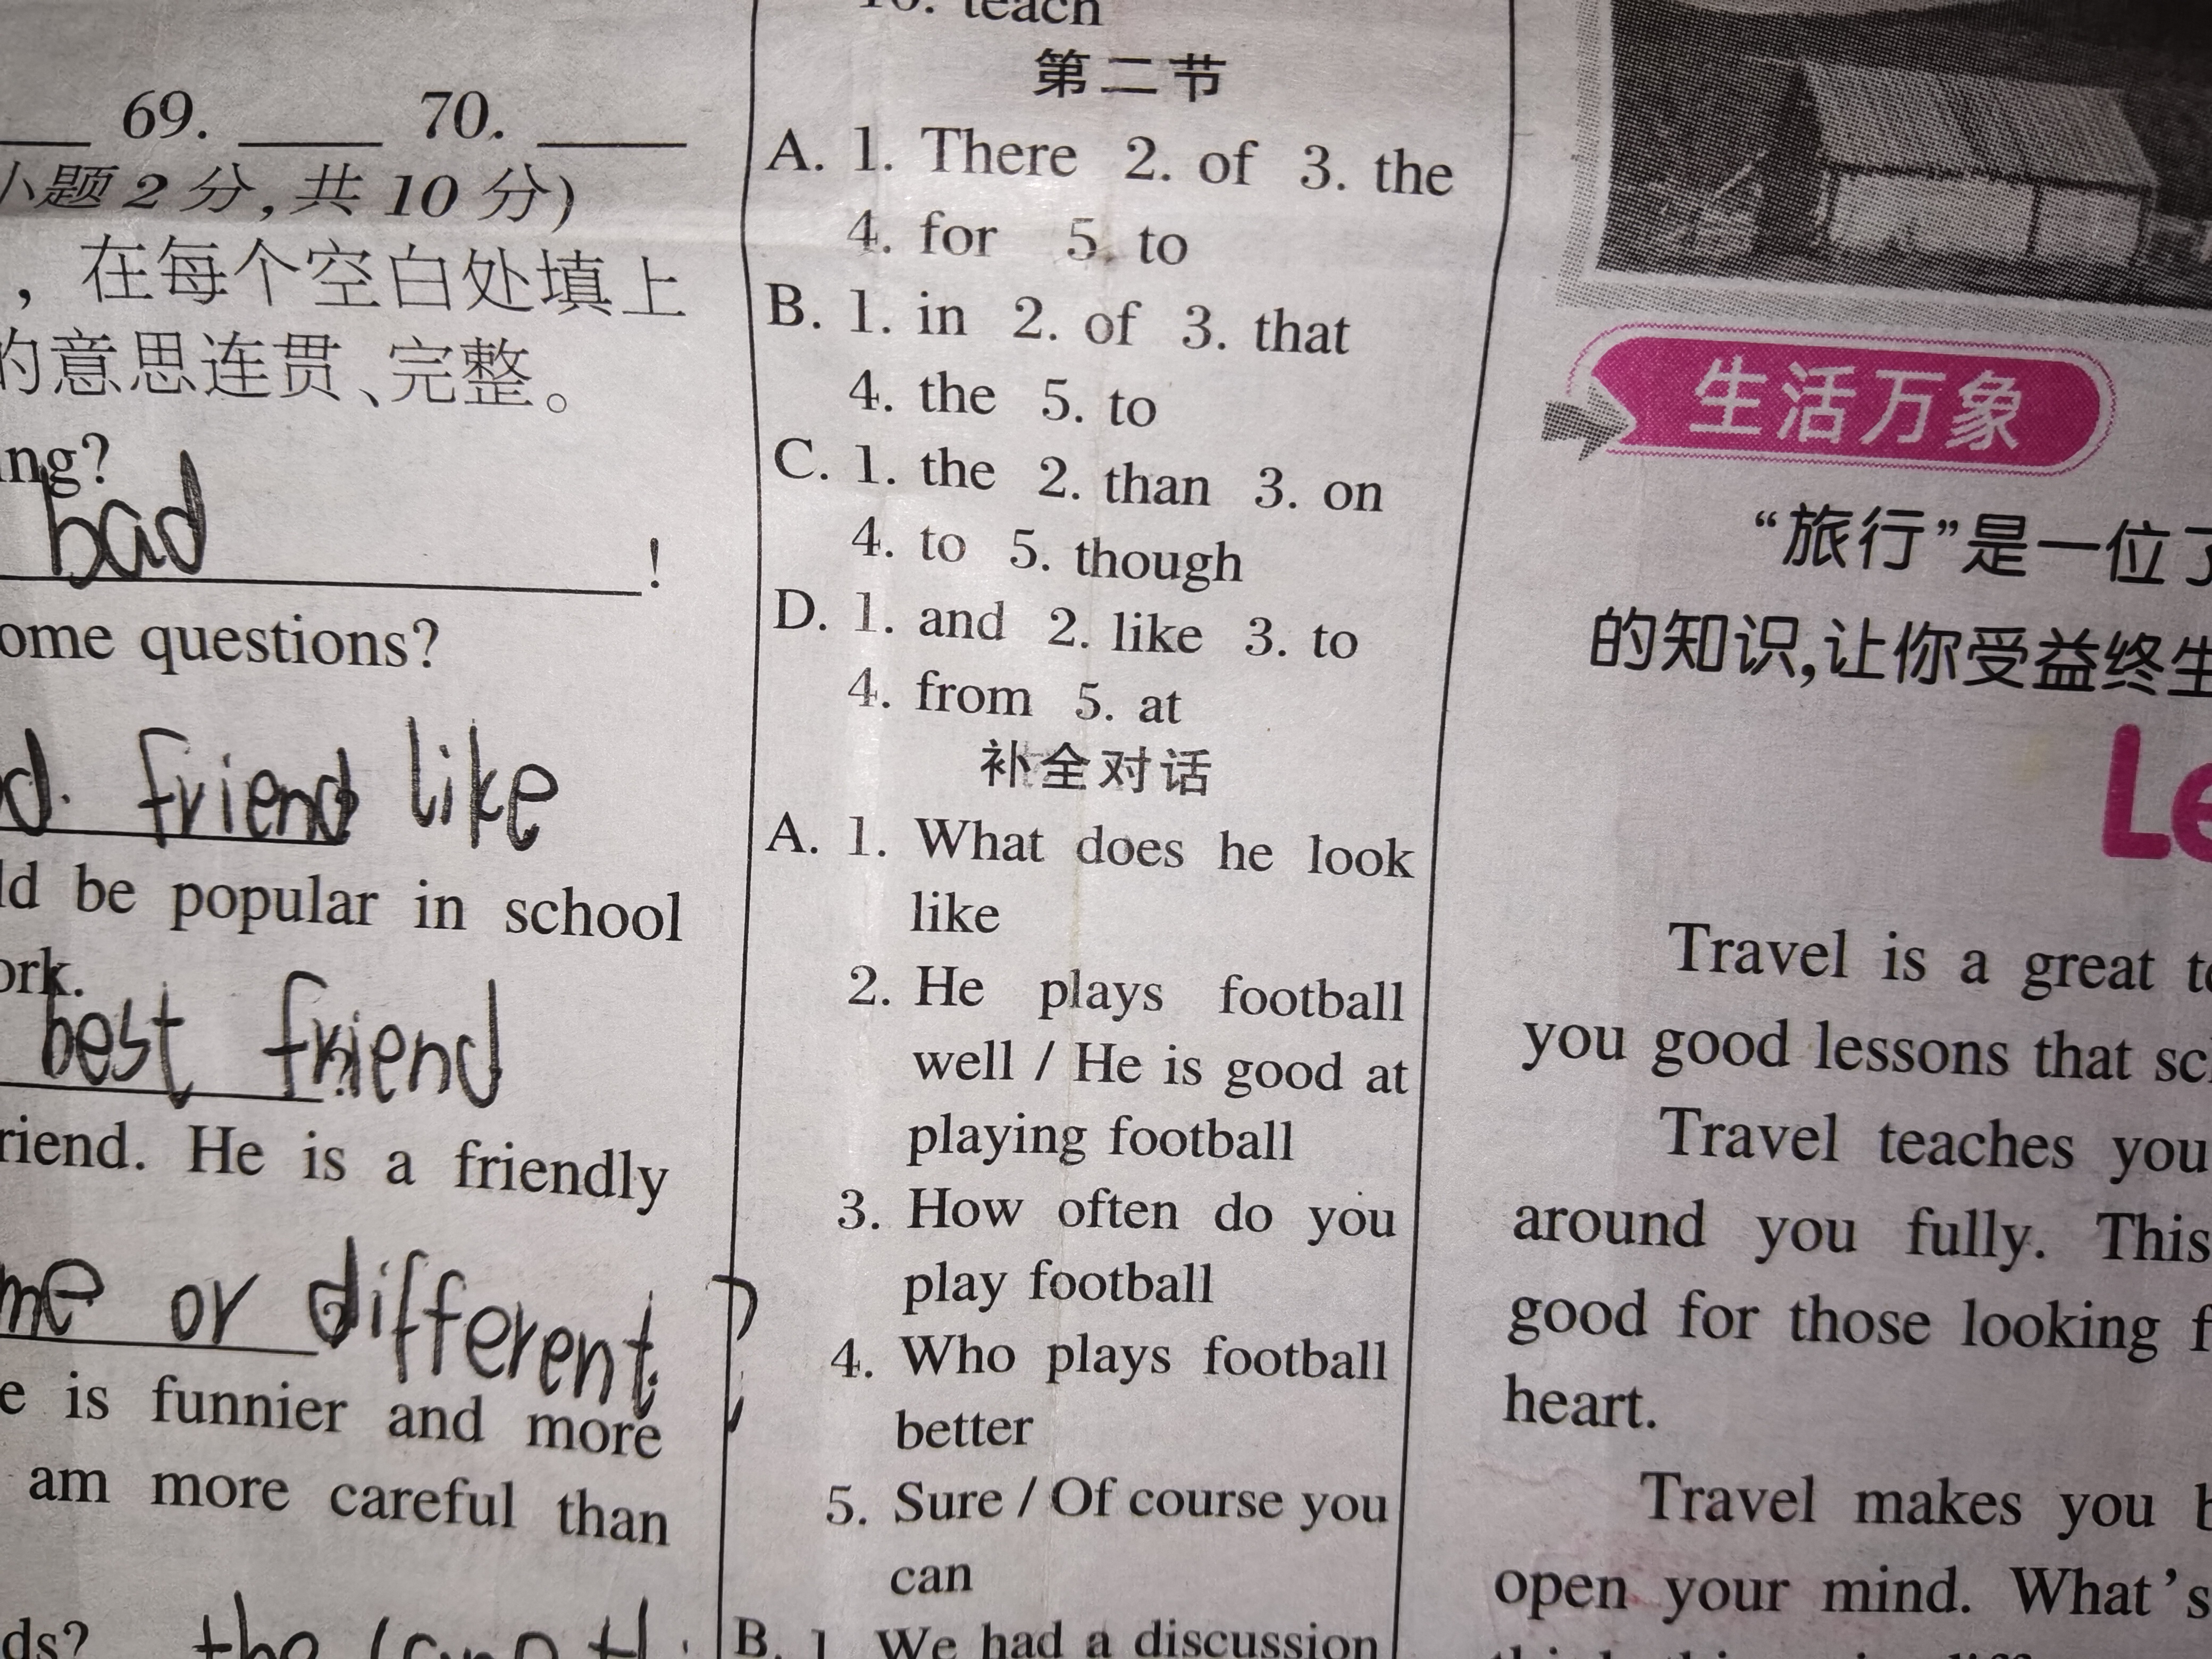 69. ____ 70. ____
小题 2 分,共 10 分)
，在每个空白处填上
的意思连贯、完整。
bad
!
questions?
friend like
be popular in school
best friend
He is a friendly
or different
is funnier and more
am more careful than
teach
第二节
A. 1. There 2. of 3. the
4. for 5. to
B. 1. in 2. of 3. that
4. the 5. to
C. 1. the 2. than 3. on
4. to 5. though
D. 1. and 2. like 3. to
4. from 5. at
补全对话
A. 1. What does he look
like
2. He plays football
well / He is good at
playing football
3. How often do you
play football
4. Who plays football
better
5. Sure / Of course you
can
B. 1. We had a discussion
生活万象
“旅行”是一位
的知识,让你受益终生
Le
Travel is a great
you good lessons that
Travel teaches you
around you fully. This
good for those looking
heart.
Travel makes you
open your mind. What's